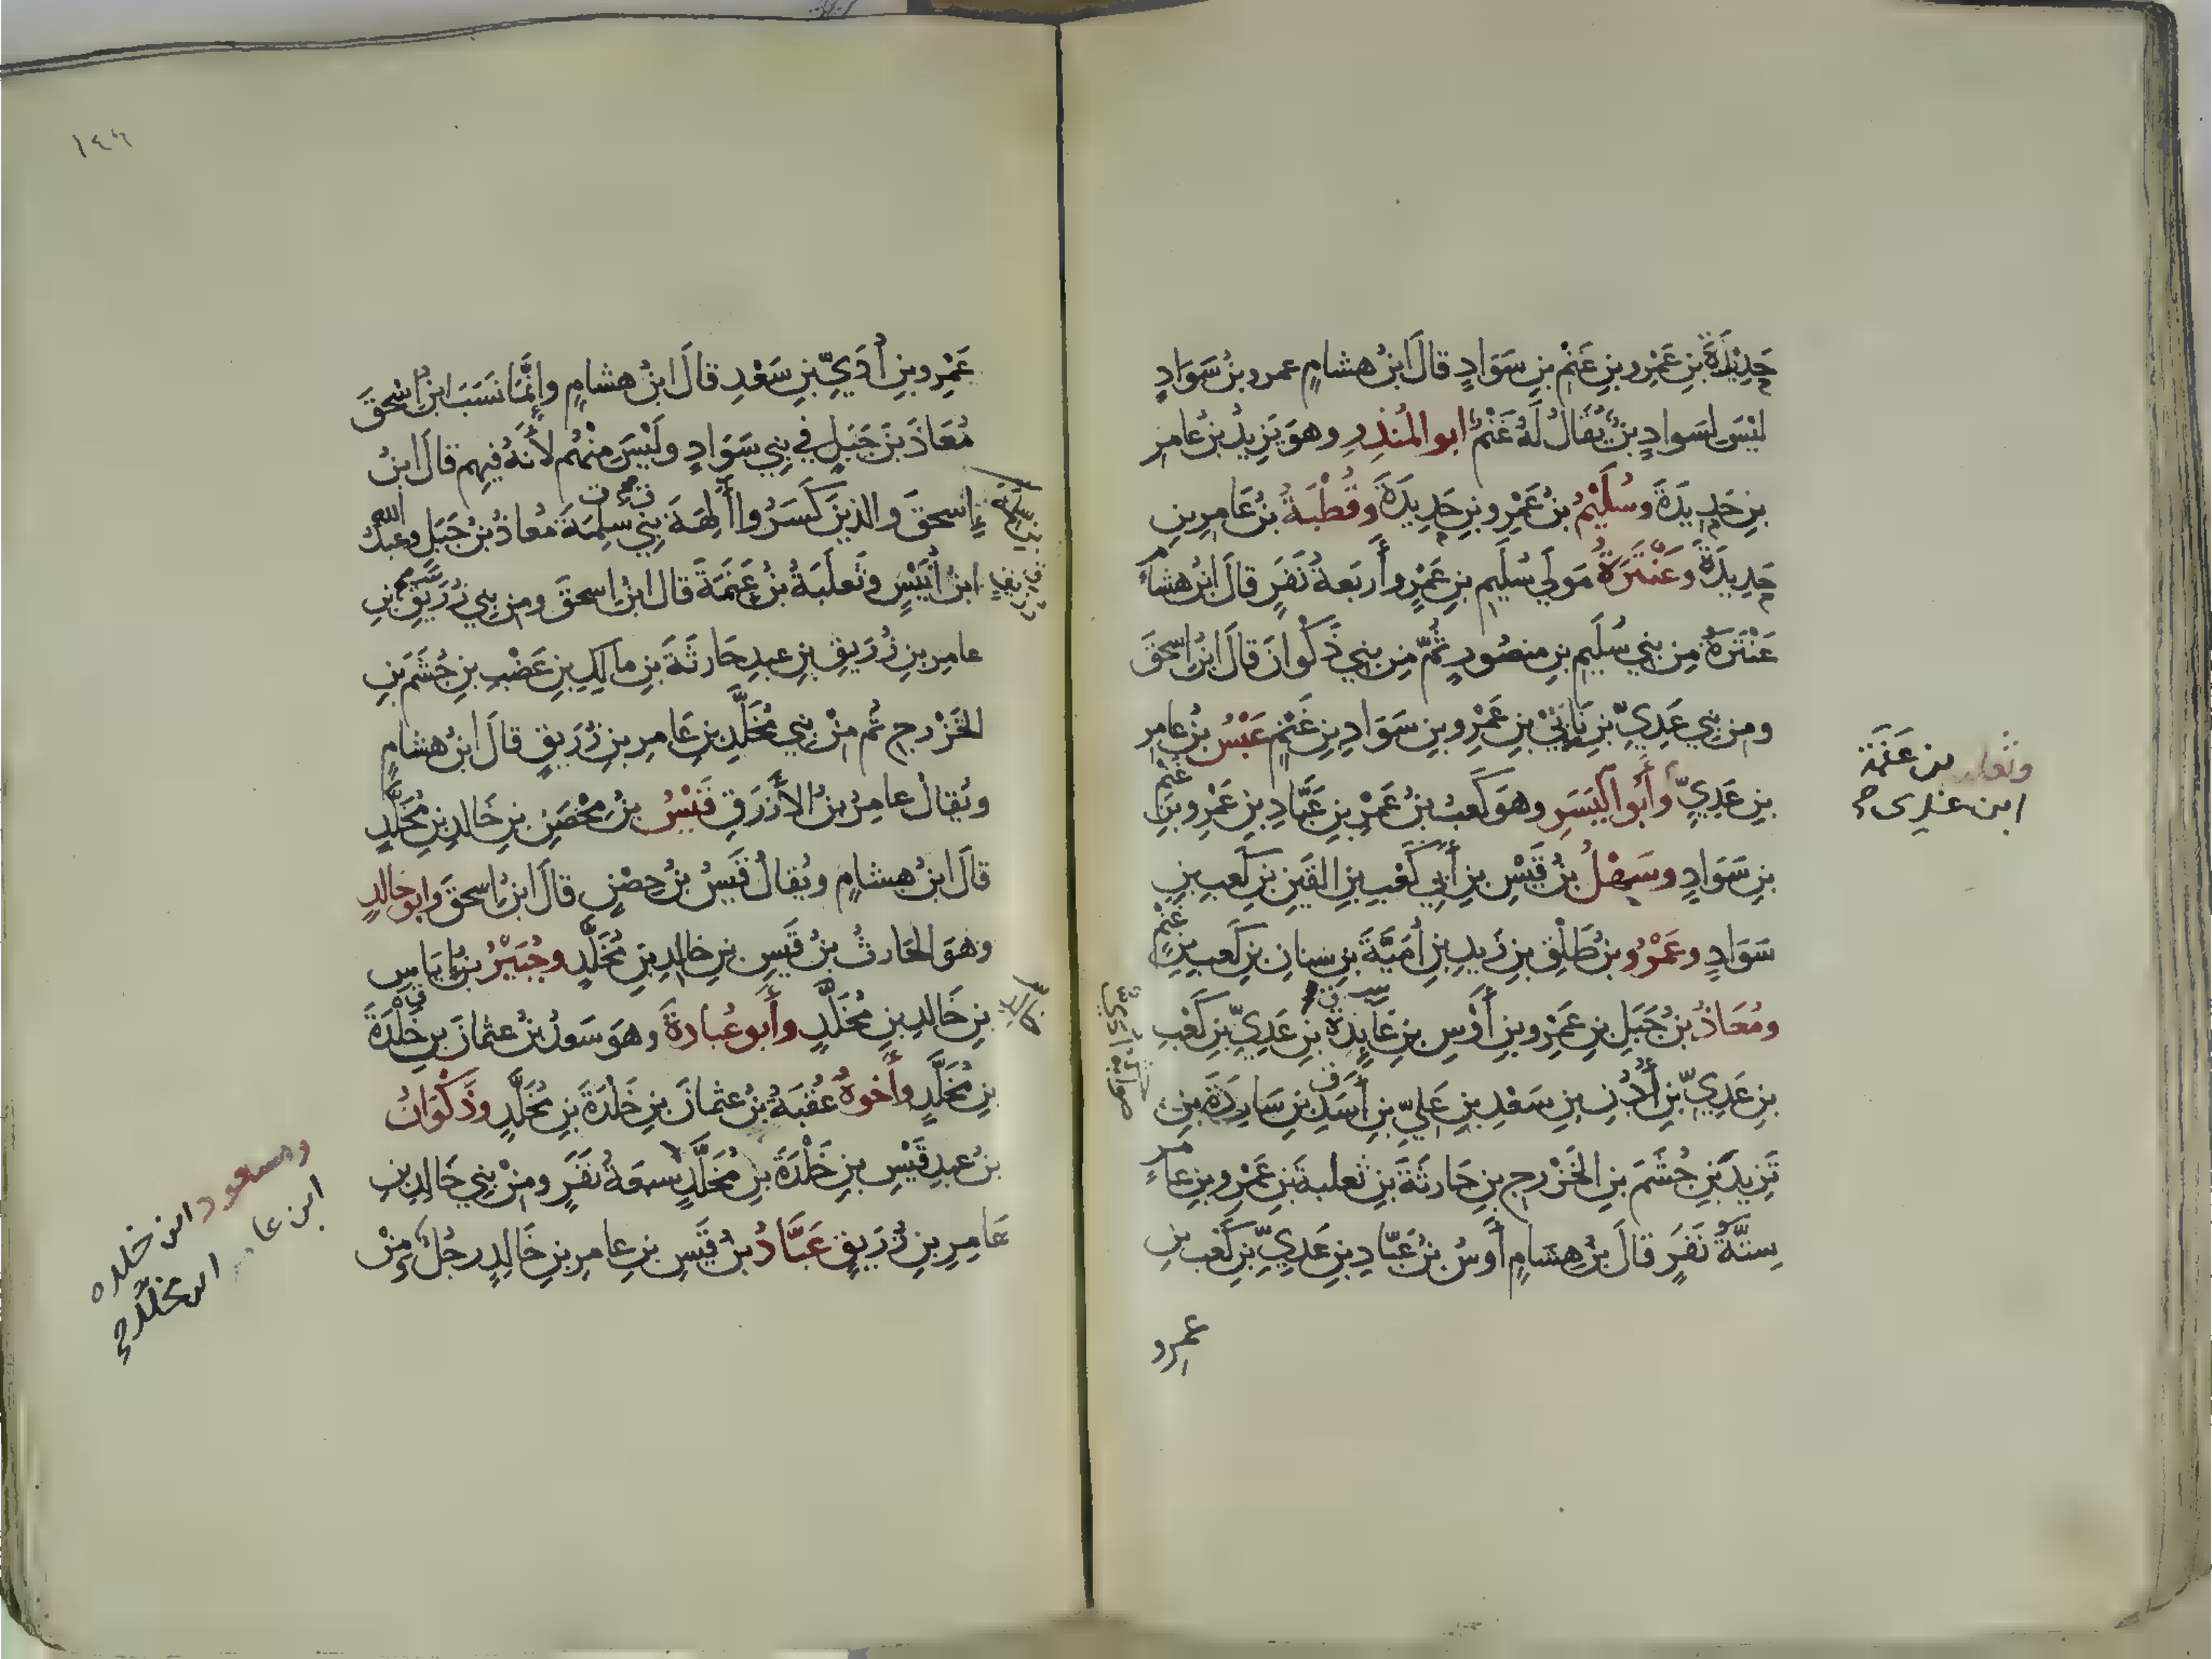 حَدِيْدَةَ بنِ عَمْرِو بنِ غَنْمِ بنِ سَوَادٍ قالَ ابنُ هشامٍ عمرو بنُ سَوَادٍ
ليْسَ لسَوادٍ بنٌ يُقَالُ لَهُ غَنْمٌ ابو المُنذِرِ وهوَ يَزِيدُ بنُ عامِرِ
بنِ حَدِيدَةَ وسُلَيْمُ بنُ عَمْرِو بنِ حَدِيدَةَ وقُطْبَةُ بنُ عَامِرِ بنِ
حَدِيدَةَ وعَنْتَرَةُ مَولَى سُلَيمِ بنِ عَمْرٍو أَربَعةُ نَفَرٍ قالَ ابنُ هشامٍ
عَنْتَرَةُ مِن بَنِي سُلَيمِ بنِ منصُورٍ ثُمَّ مِن بني ذَكْوانَ قالَ ابنُ إسحقَ
ومِن بَنِي عَدِيِّ بنِ نَابِيْ بنِ عَمْرِو بنِ سَوَادِ بنِ غَنْمٍ عَبْسُ بنُ عامِرِ
بنِ عَدِيٍّ وأَبُو اليَسَرِ وهوَ كَعبُ بنُ عَمْرِو بنِ عَبَّادِ بنِ عَمْرِو بنِ غَنْمِ
بنِ سَوَادٍ وسَهْلُ بنُ قَيْسِ بنِ أَبِي كَعْبِ بنِ القَيْنِ بنِ كَعبِ بنِ
سَوَادٍ وعَمْرُو بنُ طَلْقِ بنِ زَيدِ بنِ أُمَيَّةَ بنِ سنانِ بنِ كَعبِ بنِ غَنْمٍ
ومُعَاذُ بنُ جَبَلِ بنِ عَمْرِو بنِ أَوْسِ بنِ عَايِذِ بنِ عَدِيِّ بنِ كَعْبِ
بنِ عَدِيِّ بنِ أُدَيِ بنِ سَعْدِ بنِ عَلِيِّ بنِ أَسَدِ بنِ سَارِدَةَ بنِ
تَزِيدَ بنِ جُشَمَ بنِ الخَزْرجِ بنِ حَارثَةَ بنِ ثعلبةَ بنِ عَمْرِو بنِ عامر
سِتَّةُ نَفَرٍ قالَ بنُ هِشَامٍ أَوسُ بنُ عَبّادِ بنِ عَدِيِّ بنِ كَعْبِ بنِ
عمرو
وثعلبة بن عَنَمَة
ابن عدى صح
١٤٦
عَمْرِو بنِ أُدَيِّ بنِ سَعْدِ قالَ ابنُ هشامٍ وإنَّمَا نَسَبَ ابنُ إسْحقَ
مُعَاذَ بنَ جَبَلٍ في بَنِي سَوَادٍ ولَيْسَ مِنْهُم لأَنَّهُ فيهِم قالَ ابنُ
إسحقَ والذينَ كَسَرُوا آلِهةَ بَنِي سَلِمَةَ مُعاذُ بنُ جَبَلٍ وعبدُ الله
ابنُ أُنَيْسٍ وثَعلَبَةُ بنُ عَنَمَةَ قالَ ابنُ اسحقَ ومِن بَنِي زُرَيْقِ بنِ
عامرِ بنِ زُرَيقِ بنِ عبدِ حَارثَةَ بنِ مالِكِ بنِ غَضْبِ بنِ جُشَمَ بنِ
الخَزْرجِ ثُم مِنْ بَنِي مُخَلَّدِ بنِ عَامِرِ بنِ زُرَيقٍ قالَ ابنُ هشامٍ
ويُقالُ عامِرُ بنُ الأَزرَقِ قَيْسُ بنُ مِحْصَنِ بنِ خَالدِ بنِ مُخَلَّدٍ
قالَ ابنُ هشامٍ ويُقالُ قَيسُ بنُ حِصْنٍ قالَ ابنُ إسحقَ وابو خالدٍ
وهوَ الحَارثُ بنُ قَيسِ بنِ خالِدِ بنِ مُخَلَّدٍ وجُبَيْرُ بنُ إيَاسِ
بنِ خَالدِ بنِ مُخَلَّدٍ وأَبو عُبادةَ وهوَ سَعدُ بنُ عثمانَ بنِ خَلْدَةَ
بنِ مُخَلَّدٍ وأَخوهُ عُقْبَةُ بنُ عثمانَ بنِ خَلدَةَ بنِ مُخَلَّدٍ وذَكْوَانُ
بنُ عبدِ قَيْسِ بنِ خَلْدَةَ بنِ مُخَلَّدٍ سبعةُ نَفَرٍ ومِنْ بَنِي خَالِدِ بنِ
عَامِرِ بنِ زُرَيقٍ عَبَّادُ بنُ قَيسِ بنِ عامرِ بنِ خَالِدٍ رجُلٌ مِنْ
ومسعود ابن خلده
ابن عامر ابن مخلّد صح